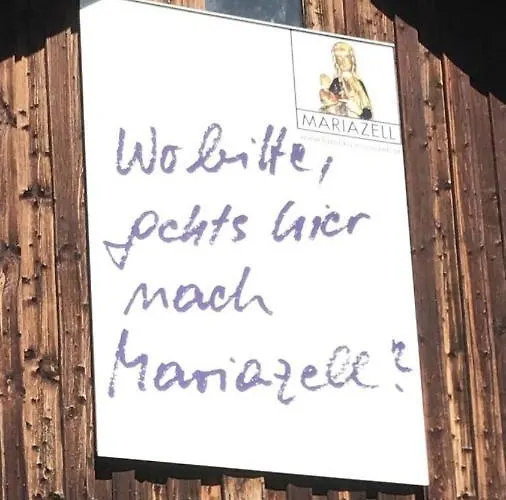 MARIAZELL
Wo bitte,
gehts hier
nach
Mariazell?